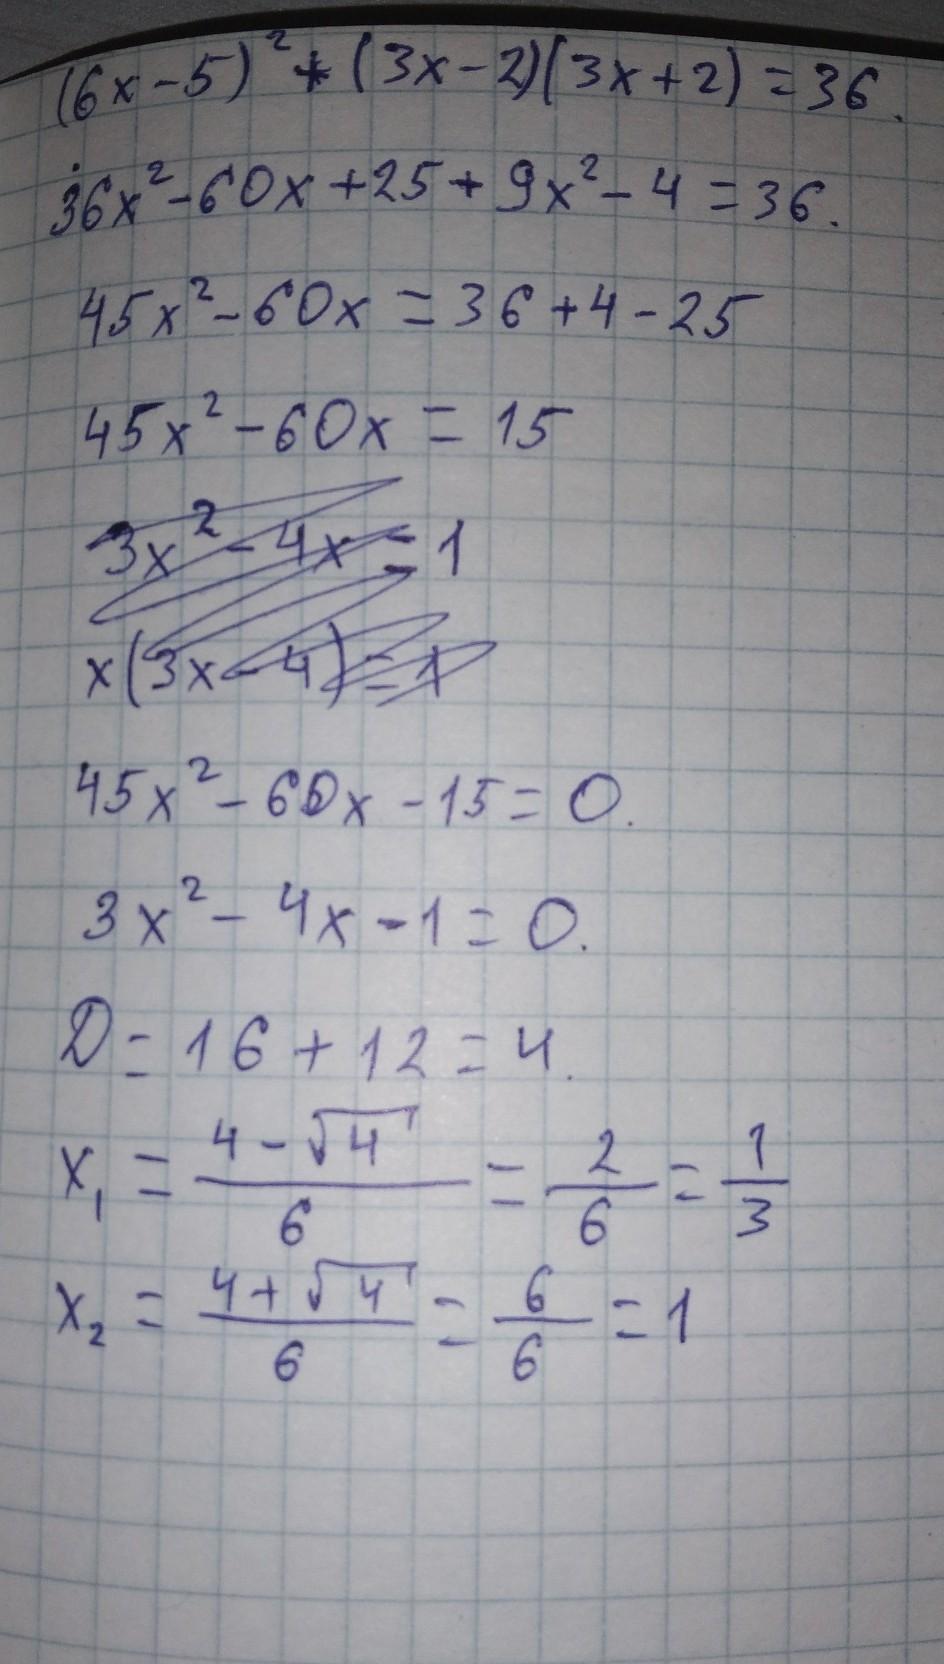 (6x-5)² + (3x-2)(3x+2) = 36.
36x² - 60x + 25 + 9x² - 4 = 36.
45x² - 60x = 36 + 4 - 25
45x² - 60x = 15
3x² - 4x = 1
x(3x - 4) = 1
45x² - 60x - 15 = 0.
3x² - 4x - 1 = 0.
D = 16 + 12 = 4.
x₁ = (4 - √4)/6 = 2/6 = 1/3
x₂ = (4 + √4)/6 = 6/6 = 1